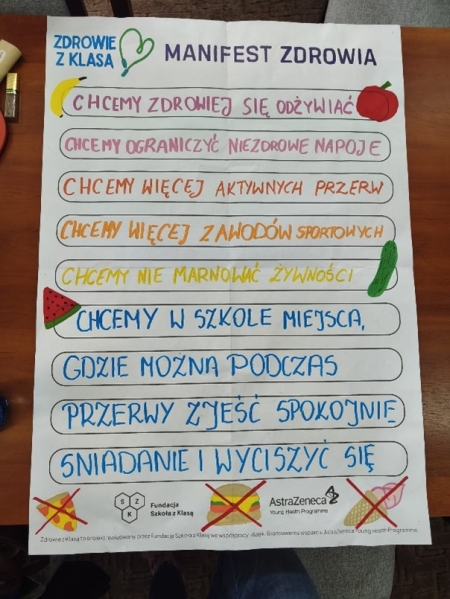 ZDROWIE
Z KLASĄ
MANIFEST ZDROWIA
CHCEMY ZDROWIEJ SIĘ ODŻYWIAĆ
CHCEMY OGRANICZYĆ NIEZDROWE NAPOJE
CHCEMY WIĘCEJ AKTYWNYCH PRZERW
CHCEMY WIĘCEJ ZAWODÓW SPORTOWYCH
CHCEMY NIE MARNOWAĆ ŻYWNOŚCI
CHCEMY W SZKOLE MIEJSCA,
GDZIE MOŻNA PODCZAS
PRZERWY ZJEŚĆ SPOKOJNIE
ŚNIADANIE I WYCISZYĆ SIĘ
S Z
K
Fundacja
Szkoła z Klasą
AstraZeneca
Young Health Programme
Zdrowie z klasą to projekt realizowany przez Fundację Szkoła z Klasą we współpracy